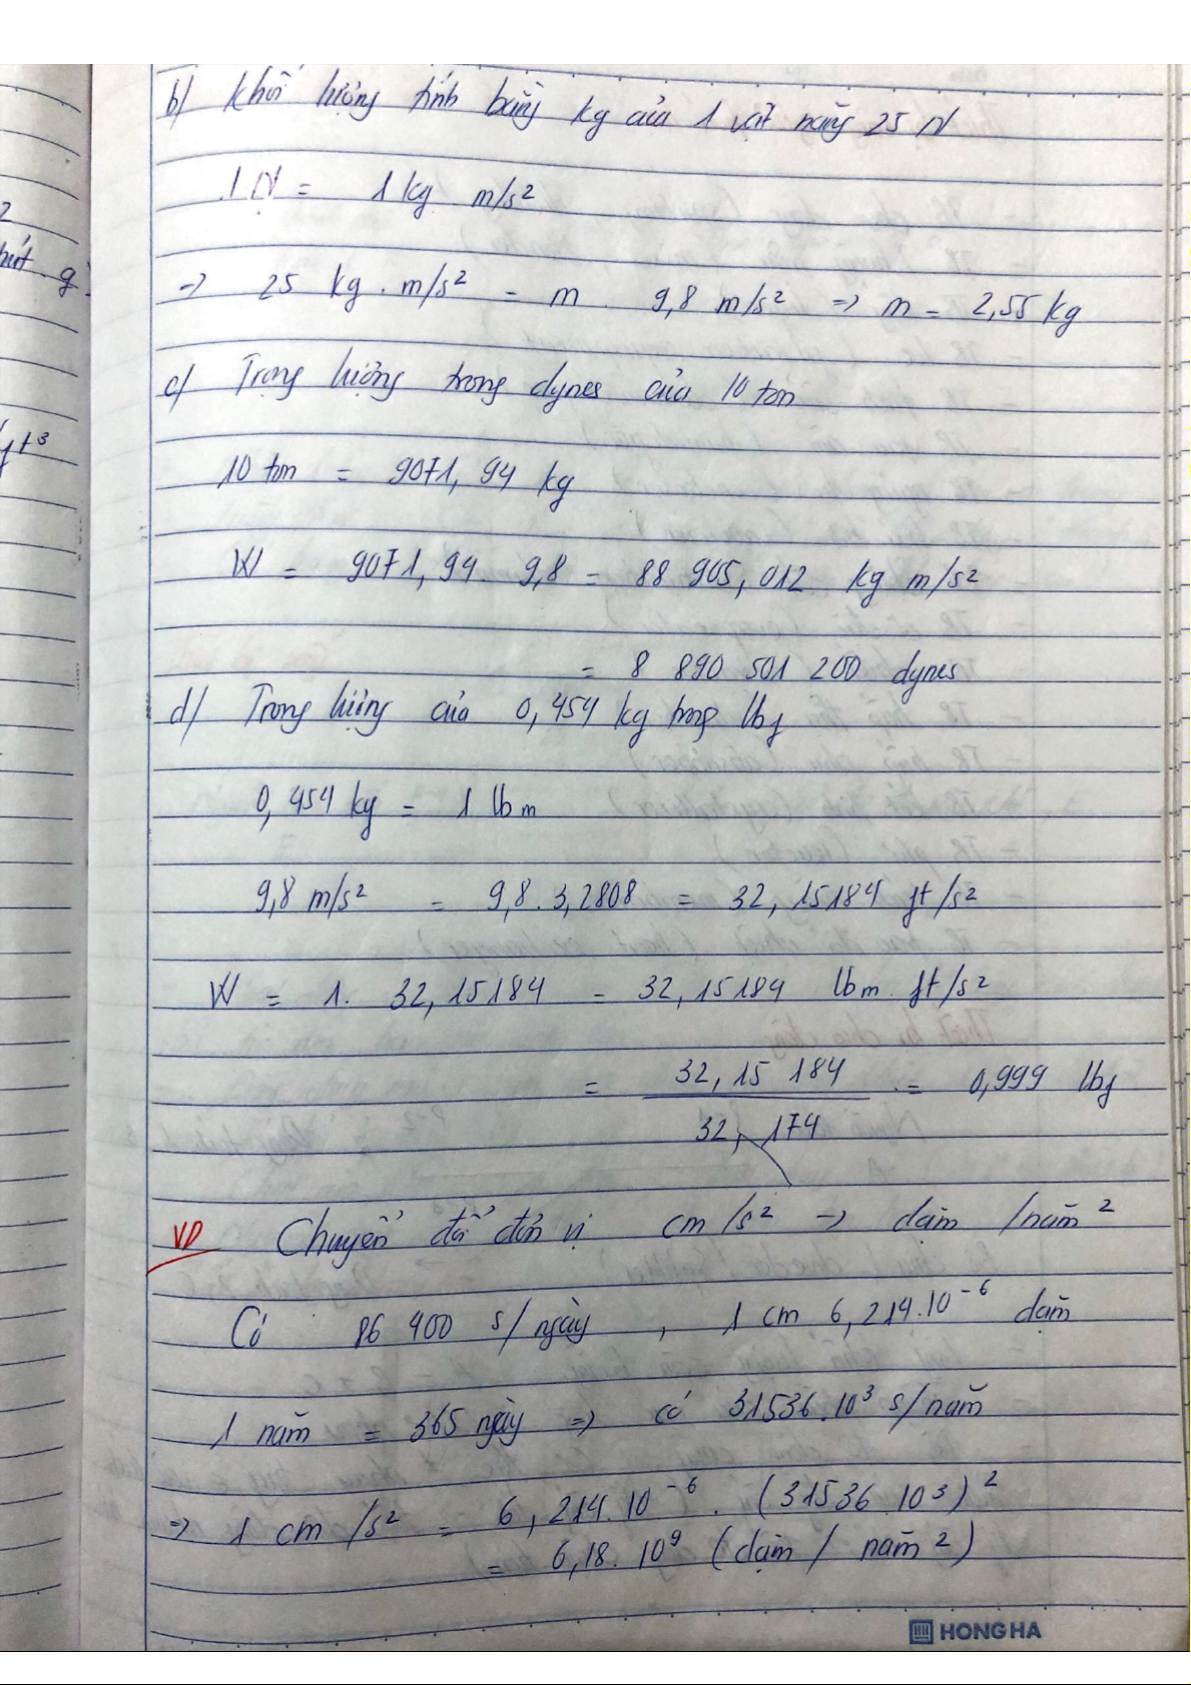 b) Khối lượng tính bằng kg của 1 vật nặng 25 N
1 N = 1 kg m/s²
=> 25 kg . m/s² = m . 9,8 m/s² => m = 2,55 kg
c) Trọng lượng trong dynes của 10 ton
10 ton = 9071,94 kg
W = 9071,94 . 9,8 = 88 905,012 kg m/s²
= 8 890 501 200 dynes
d) Trọng lượng của 0,454 kg trong lbf
0,454 kg = 1 lbm
9,8 m/s² = 9,8 . 3,2808 = 32,15184 ft/s²
W = 1. 32,15184 = 32,15184 lbm . ft/s²
= 32,15 184 / 32,174 = 0,999 lbf
VD Chuyển đổi đơn vị cm/s² -> dặm /năm²
Có 86 400 s/ngày , 1 cm 6,214.10⁻⁶ dặm
1 năm = 365 ngày => có 31536.10³ s/năm
=> 1 cm /s² = 6,214.10⁻⁶ . (31536.10³)²
= 6,18. 10⁹ (dặm / năm²)
HONG HA